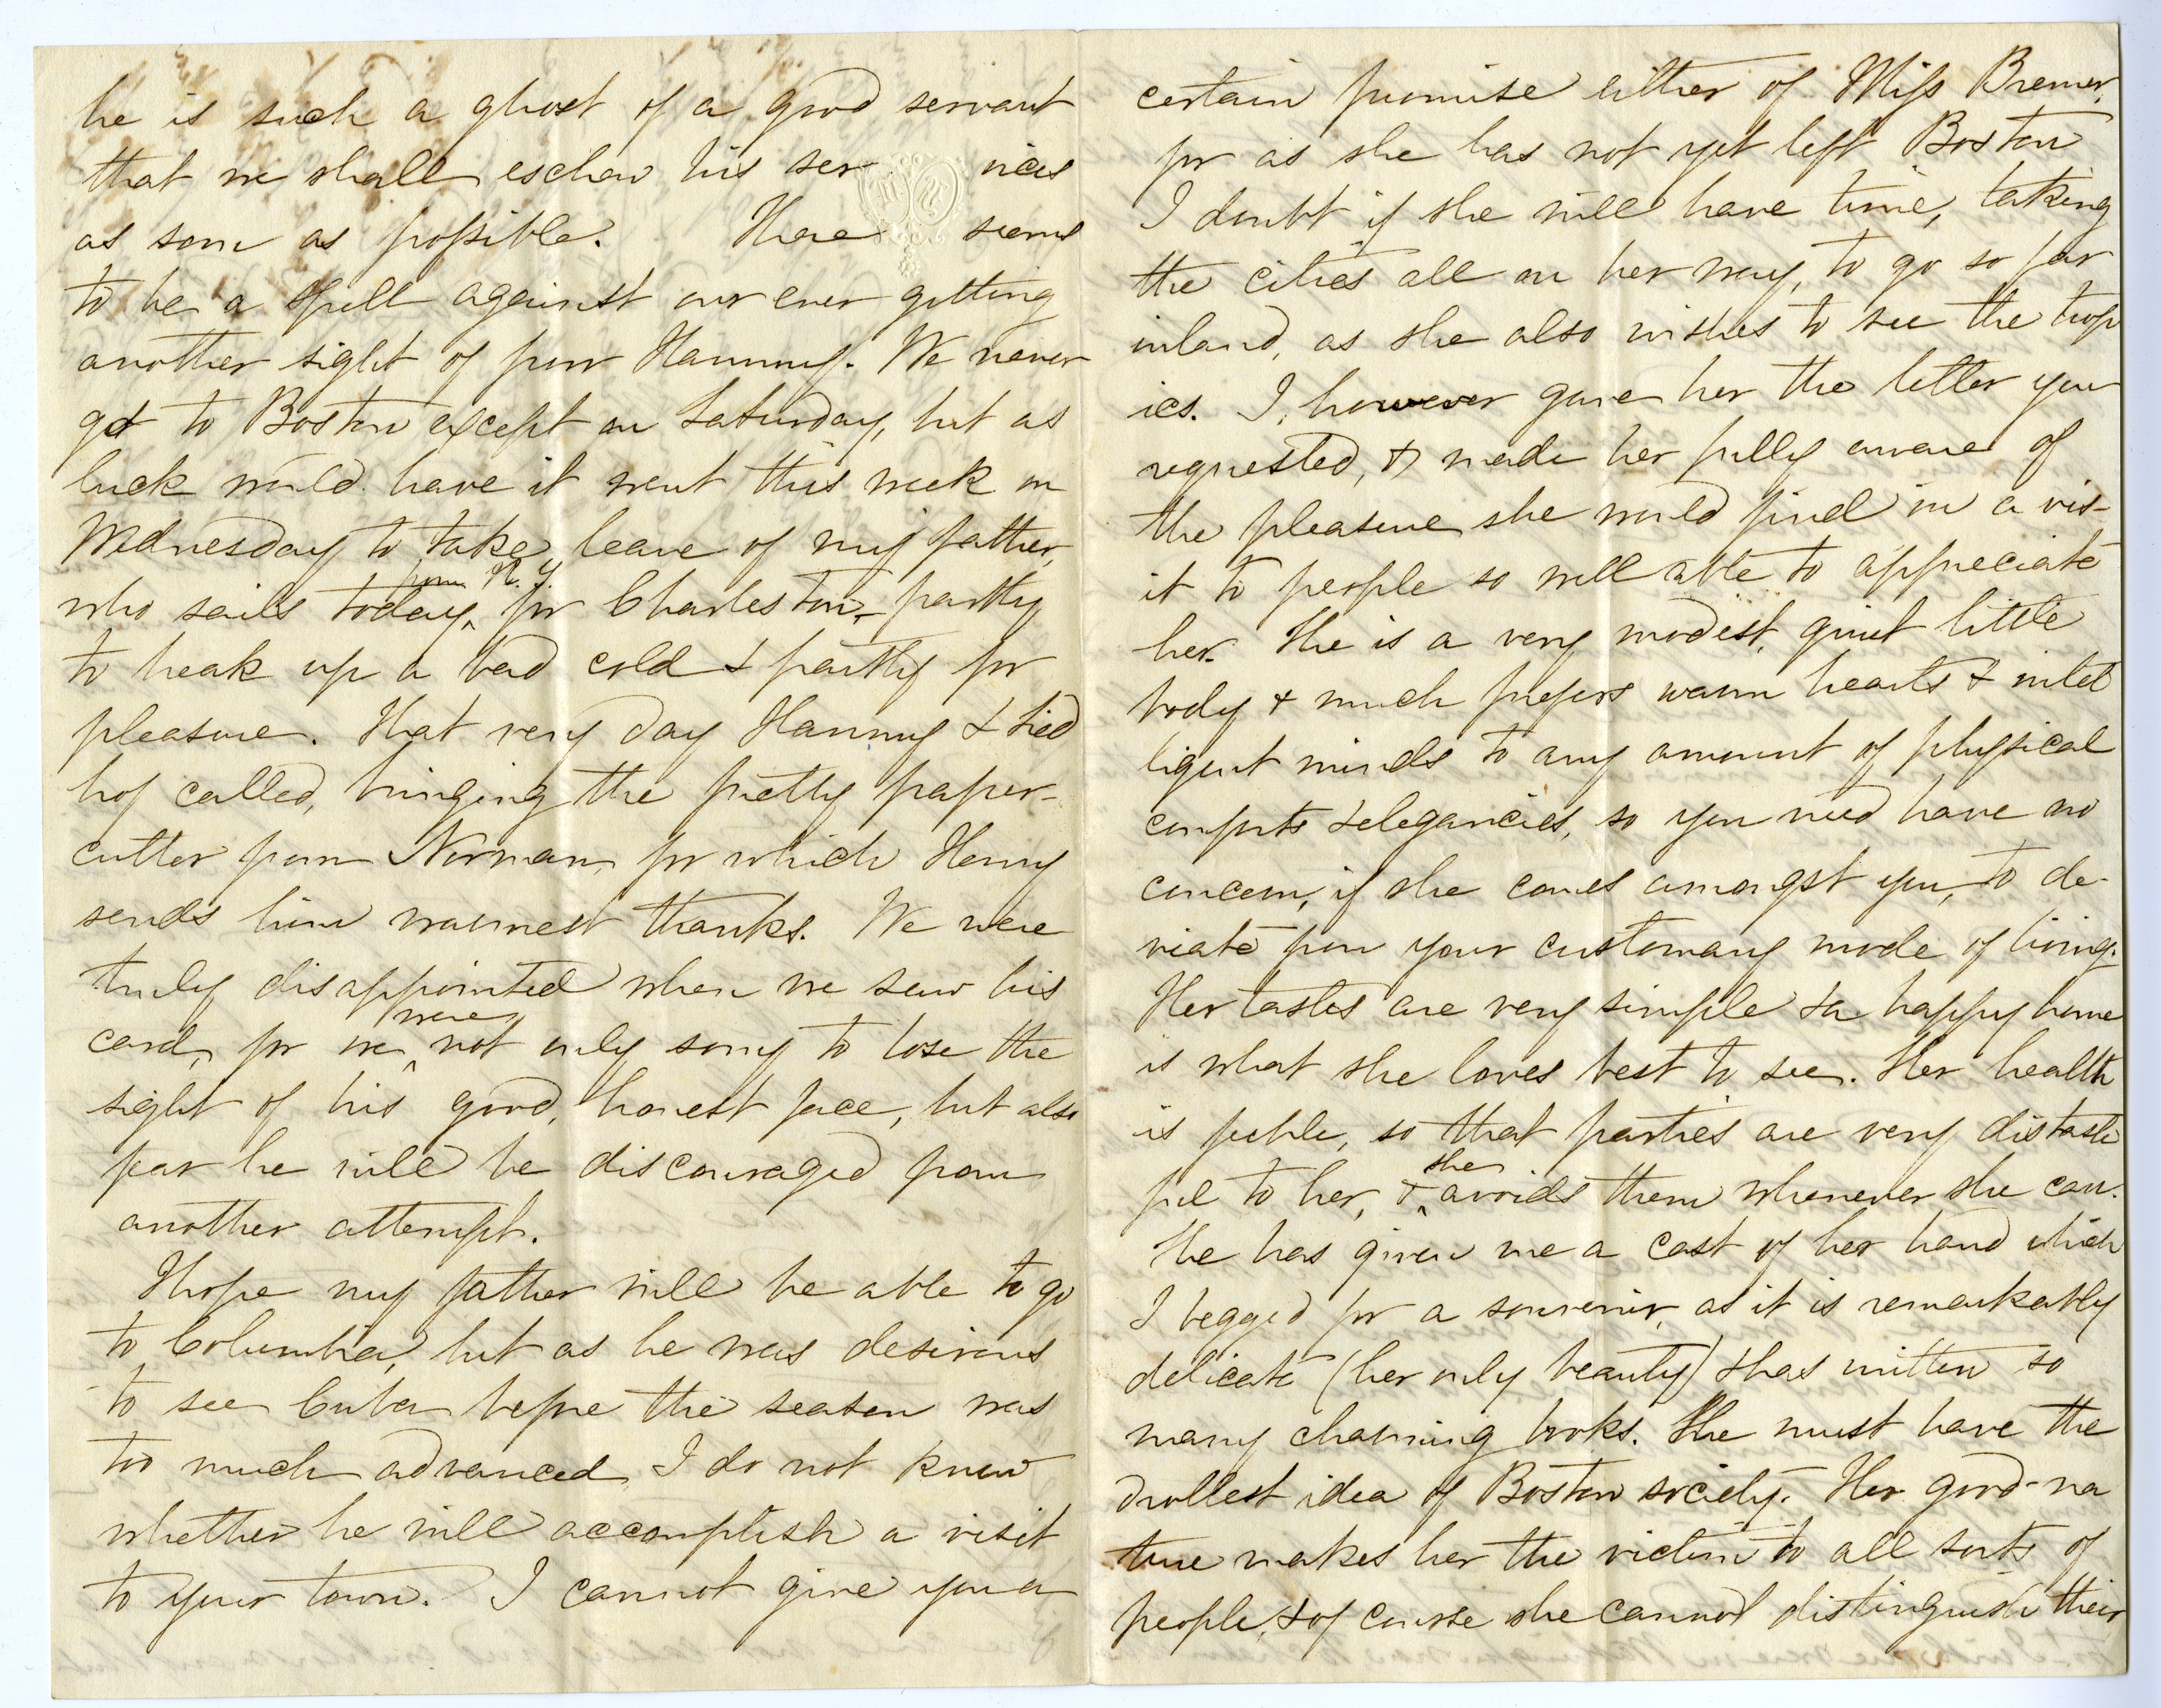 he is such a ghost of a good servant
that we shall eschew his ser vices
as soon as possible. There seems
to be a spell against our ever getting
another sight of poor Hammy. We never
get to Boston except on Saturday, but as
luck would have it went this week on
Wednesday to take leave of my father,
who sails today, from N. Y. for Charleston, partly
to break up a bad cold & partly for
pleasure. That very day Hammy &
called, bringing the pretty paper-
cutter from Norman, for which Henry
sends him warmest thanks. We were
truly disappointed when we saw his
card, for we were not only sorry to lose the
sight of his good, honest face, but also
fear he will be discouraged from
another attempt.
I hope my father will be able to go
to Columbia, but as he was desirous
to see Cuba before the season was
too much advanced, I do not know
whether he will accomplish a visit
to your town. I cannot give you a
certain promise either of Miss Bremer,
for as she has not yet left Boston
I doubt if she will have time, taking
the cities all on her way, to go so far
inland, as she also wishes to see the trop
ics. I, however gave her the letter you
requested, & made her fully aware of
the pleasure she would find in a vis-
it to people so well able to appreciate
her. She is a very modest, quiet little
body & much prefers warm hearts & intel
ligent minds to any amount of physical
comforts & elegancies, so you need have no
concern, if she comes amongst you, to de-
viate from your customary mode of living.
Her tastes are very simple & a happy home
is what she loves best to see. Her health
is feeble, so that parties are very distaste
ful to her, & she avoids them whenever she can.
She has given me a cast of her hand which
I begged for a souvenir, as it is remarkably
delicate (her only beauty) & has written so
many charming books. She must have the
drollest idea of Boston society. Her good-na
ture makes her the victim to all sorts of
people, & of course she cannot distinguish their